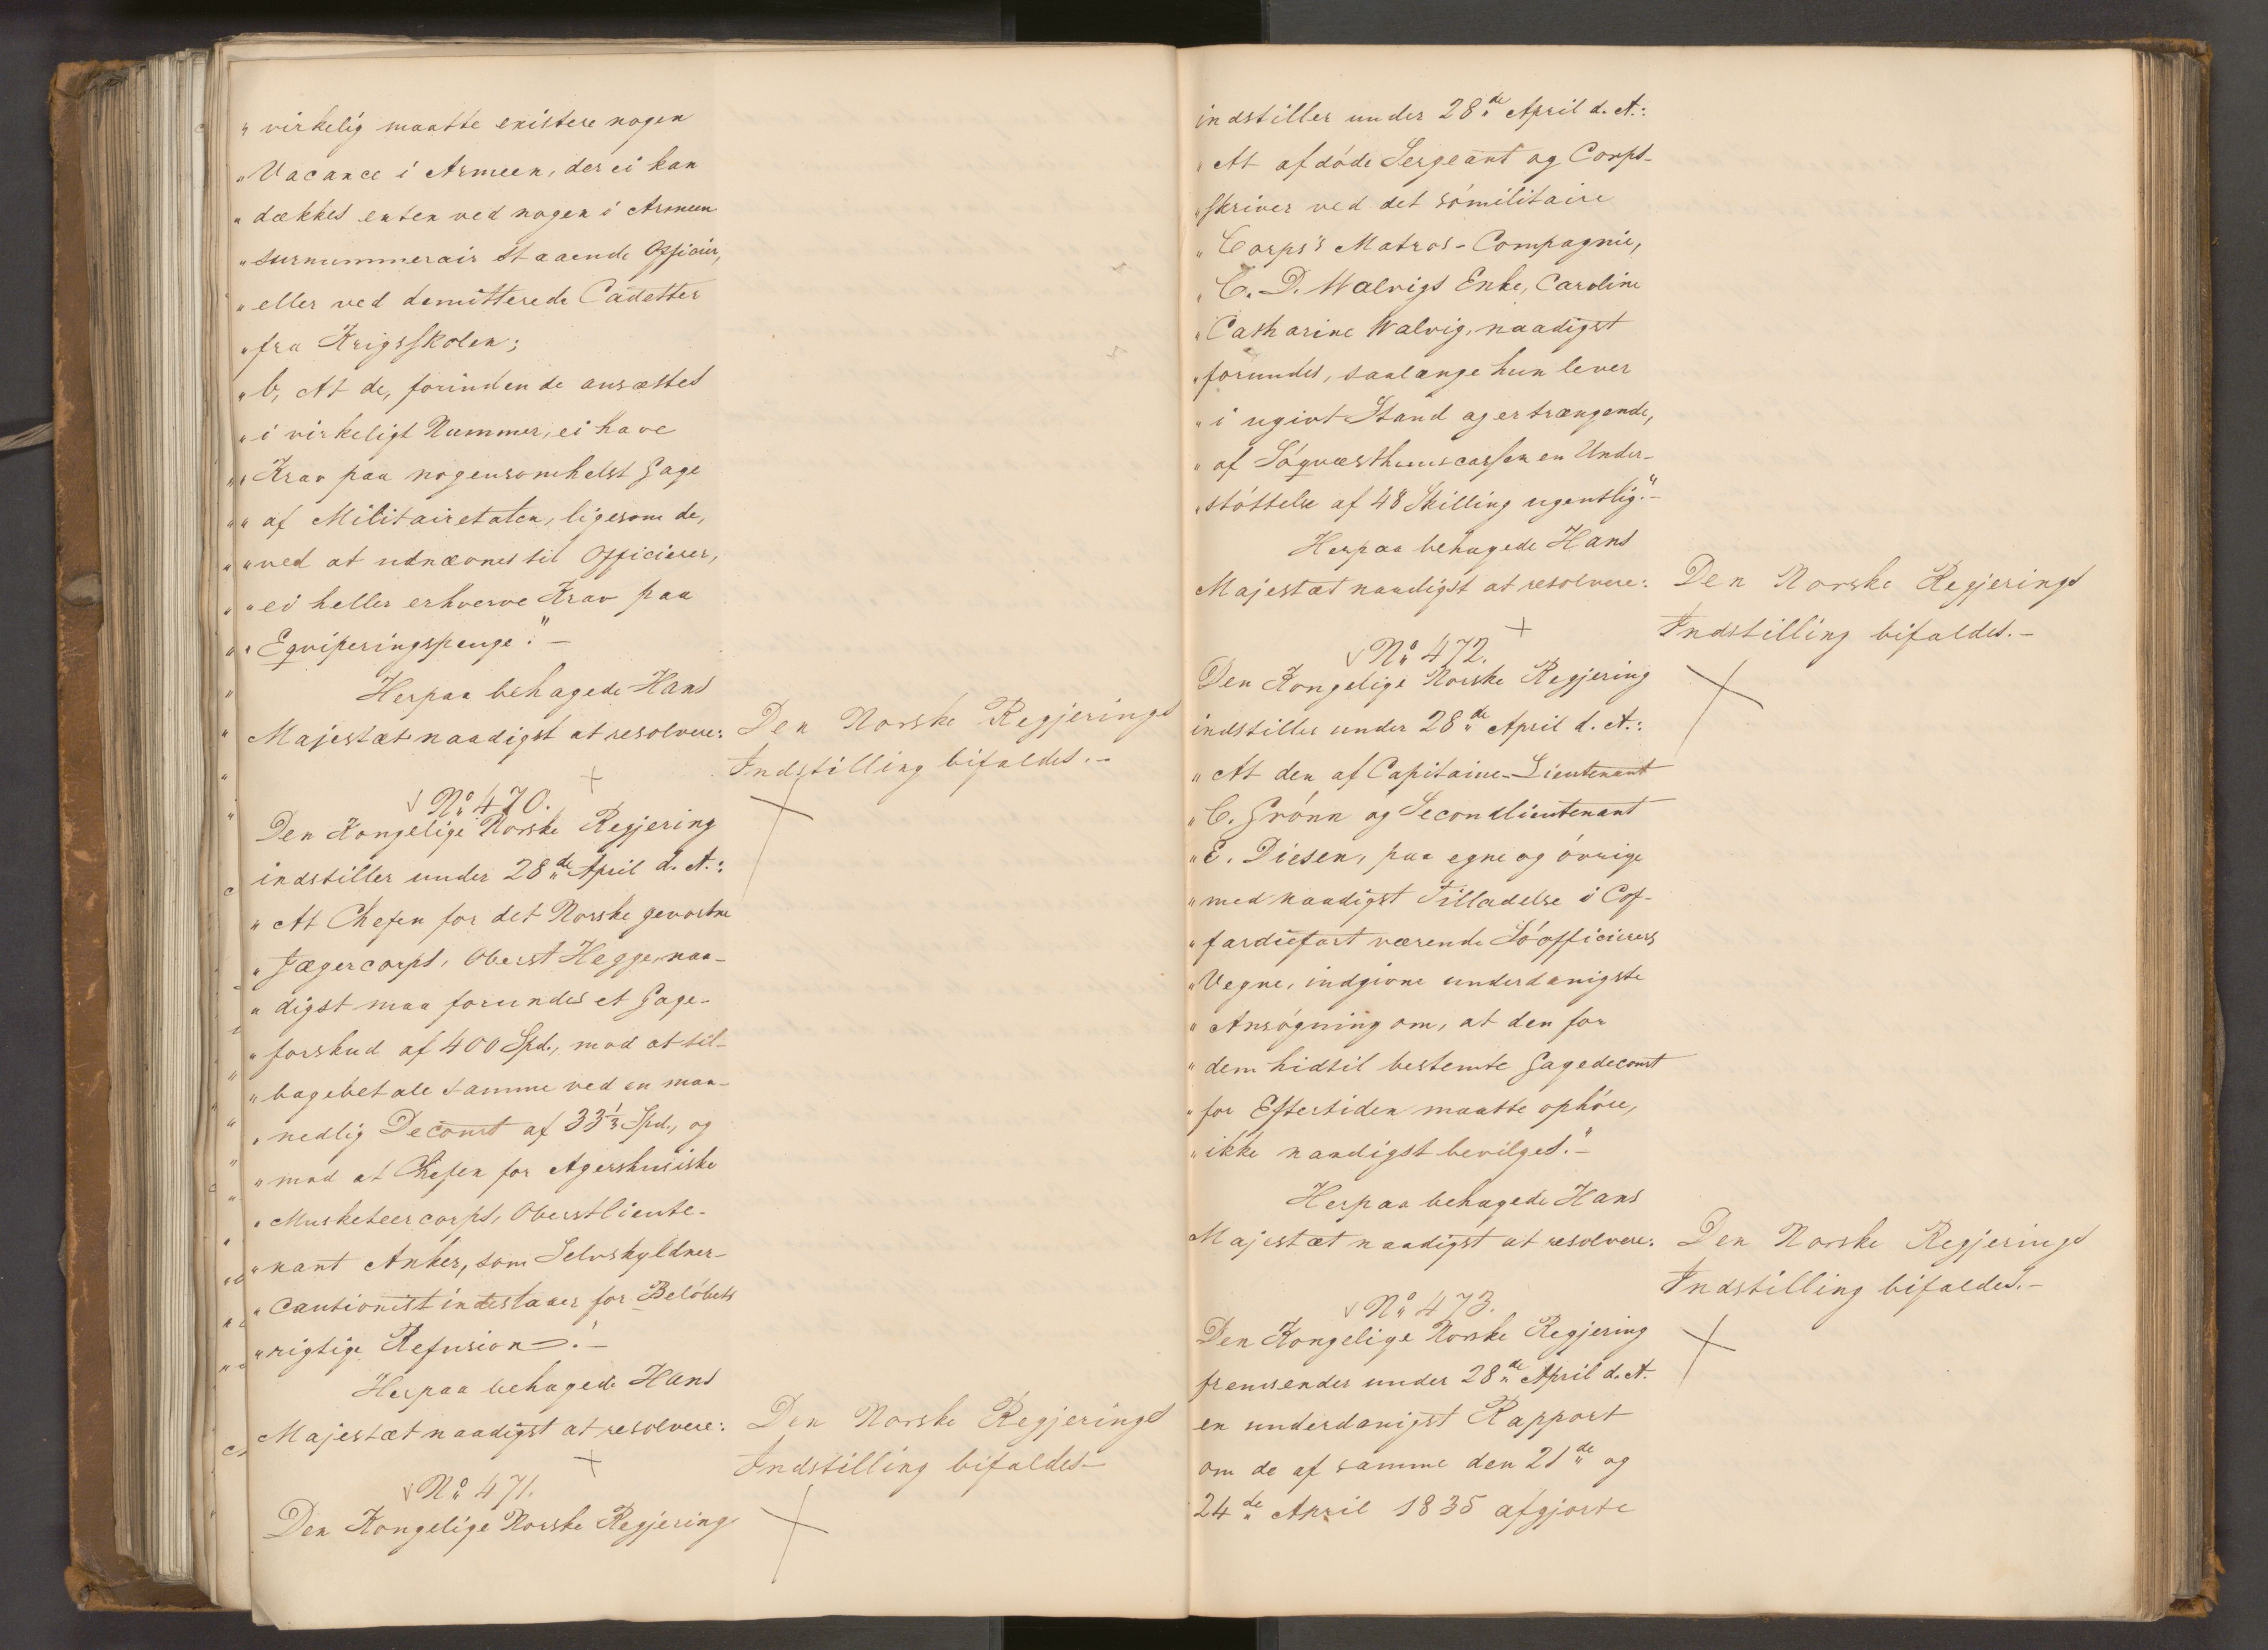 " virkelig maatte existere nogen
" Vacance i Armeen, der ei kan
" dækkes enten ved nogen i Armeen
" surnummerair staaende Officier,
" eller ved demitterede Cadetter
" fra Krigsskolen;
" b, At de, forinden de ansættes
" i virkeligt Nummer, ei have
" " Krav paa nogensomhelst Gage
" " af Militairetaten, ligesom de,
" " ved at udnævnes til Officierer,
" " ei heller erhverve Krav paa
" " Eqviperingspenge." –
Herpaa behagede Hans
Majestæt naadigst at resolvere:
Den Norske Regjerings
Indstilling bifaldes. –
No 470.
Den Kongelige Norske Regjering
indstiller under 28de April d. A.:
" At Chefen for det Norske gevorbne
" Jægercorps, Oberst Hegge, naa-
" digst maa forundes et Gage-
" forskud af 400 Spd., mod at til-
" bagebetale samme ved en maa-
" nedlig Decourt af 33 1/3 Spd., og
" mod at Chefen for Agershusiske
" Musketeercorps, Oberstliente-
" nant Anker, som Selvskyldner-
" Cautionist indestaaer for Belöbets
" rigtige Refusion." –
Herpaa behagede Hans
Majestæt naadigst at resolvere:
Den Norske Regjerings
Indstilling bifaldes –
No 471.
Den Kongelige Norske Regjering
indstiller under 28de April d. A.:
" At afdöde Sergeant og Corps-
" skriver ved det sömilitaire
" Corps's Matros-Compagnie,
" C. D. Walvigs Enke, Caroline
" Catharine Walvig, naadigst
" forundes, saalænge hun lever
" i ugivt Stand og er trængende,
" af Söqvæsthuuscassen en Under-
" støttelse af 48 Skilling ugentlig." –
Herpaa behagede Hans
Majestæt naadigst at resolvere:
Den Norske Regjerings
Indstilling bifaldes. –
No 472.
Den Kongelige Norske Regjering
indstiller under 28de April d. A.:
" At den af Capitaine-Lieutenant
" C. Grönn og Secondlieutenant
" E. Diesen, paa egne og övrige
" med naadigst Tilladelse i Cof-
" fardiefart værende Söofficierers
" Vegne, indgivne underdanigste
" Ansögning om, at den for
" dem hidtil bestemte Gagedecourt
" for Eftertiden maatte ophöre,
" ikke naadigst bevilges." –
Herpaa behagede Hans
Majestæt naadigst at resolvere:
Den Norske Regjerings
Indstilling bifaldes. –
No 473.
Den Kongelige Norske Regjering
fremsender under 28de April d. A.
en underdanigst Rapport
om de af samme den 21de og
24de April 1835 afgjorte